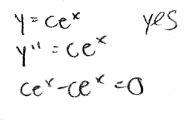 y = ce^x yes
y'' = ce^x
ce^x - ce^x = 0